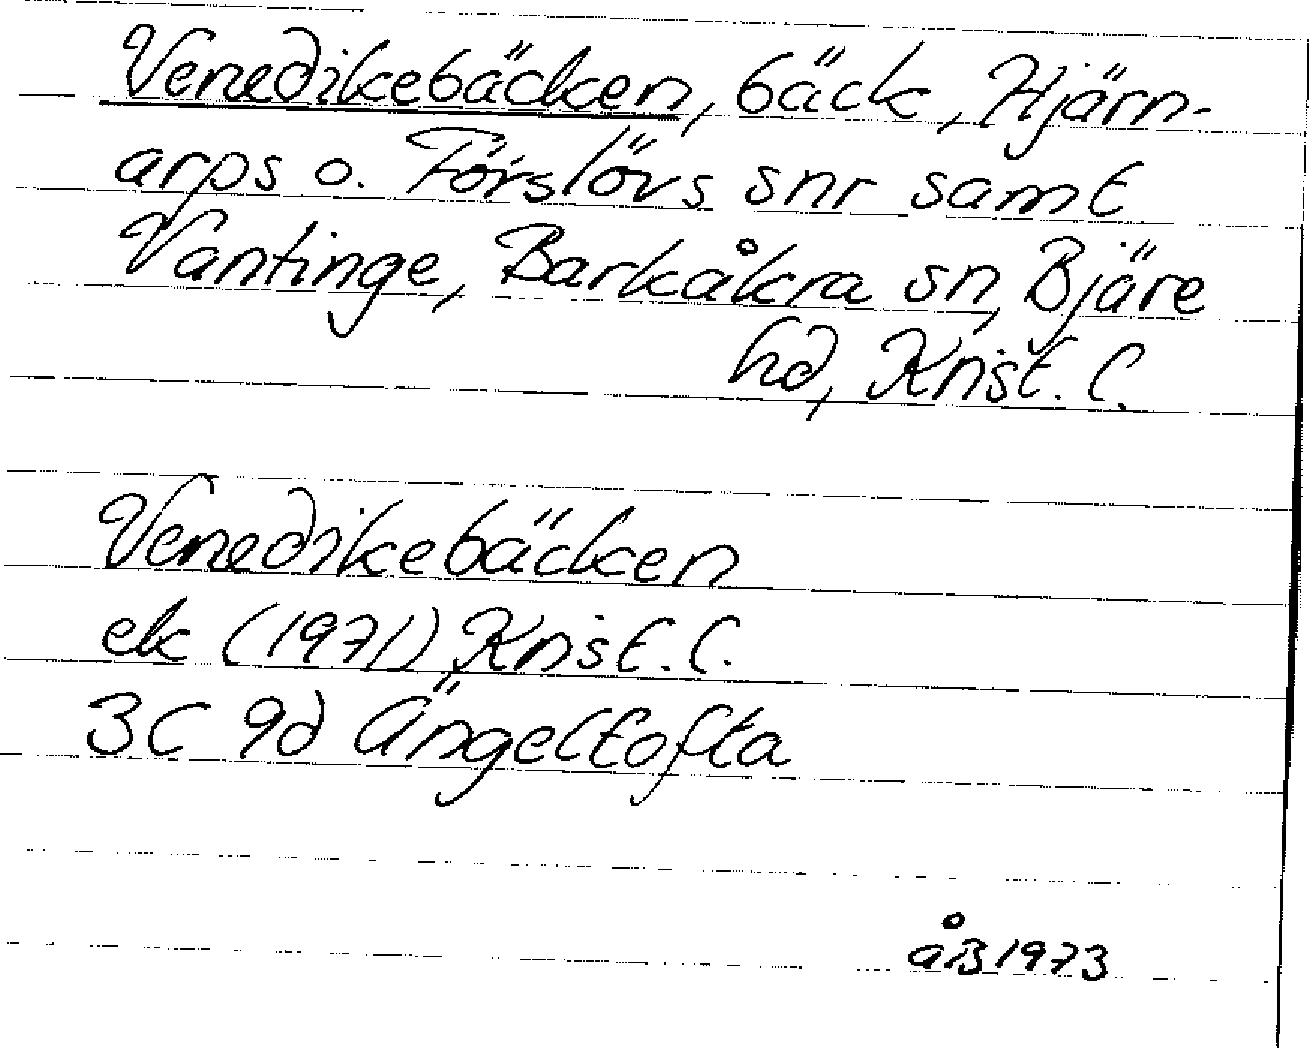 Venedikebäcken, bäck, Hjärn-
arps o. Förslövs snr samt
Vantinge, Barkåkra sn, Bjäre
hd, Krist. l.
Venedikebäcken
ek (1971) Krist. l.
3C 9d Ängeltofta
åB 1973